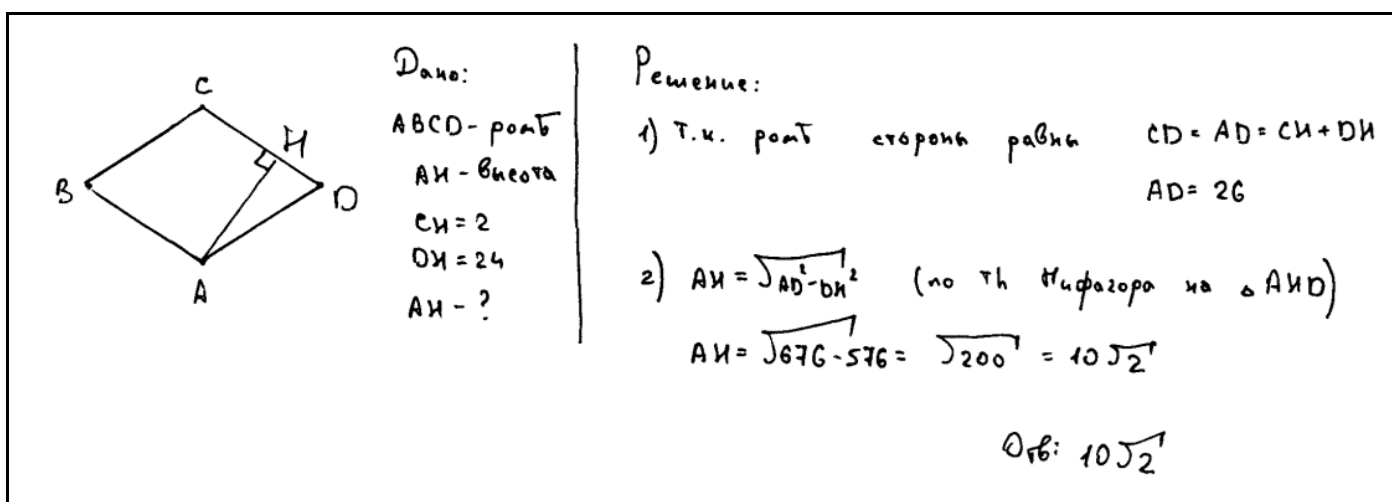 C
H
B
D
A
Дано:
ABCD - ромб
AH - высота
CH = 2
DH = 24
AH - ?
Решение:
1) Т.к. ромб стороны равны CD = AD = CH + DH
AD = 26
2) AH = √AD² - DH² (по th Пифагора на △ AHD)
AH = √676 - 576 = √200 = 10√2
Отв: 10√2